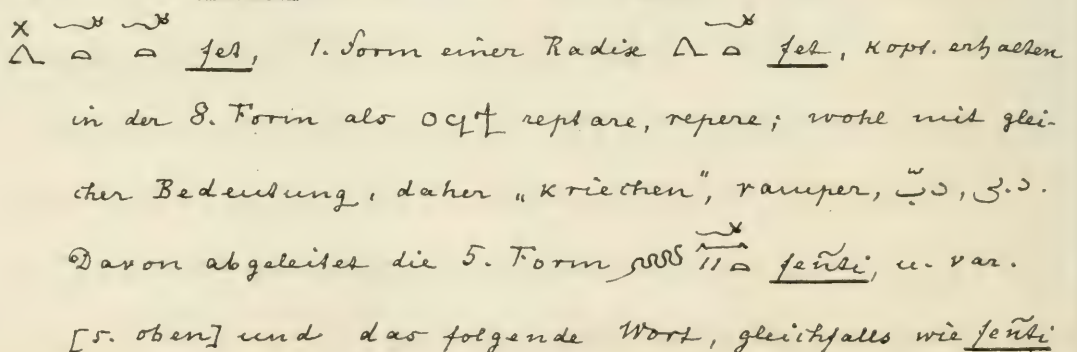 fet, 1. Form einer Radix fet, kopt. erhalten
in der 8. Form als ⲟϥϯ reptare, repere; wohl mit glei-
cher Bedeutung, daher „kriechen", ramper, دبّ, د.ى.
Davon abgeleitet die 5. Form fen̄ti, u. var.
[s. oben] und das folgende Wort, gleichfalls wie fen̄ti